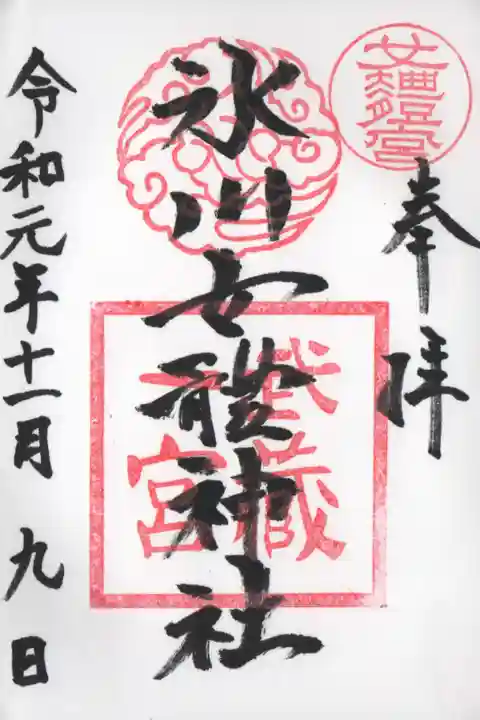 奉拝
女體宮
氷川女體神社
武蔵
一宮
令和元年十一月九日